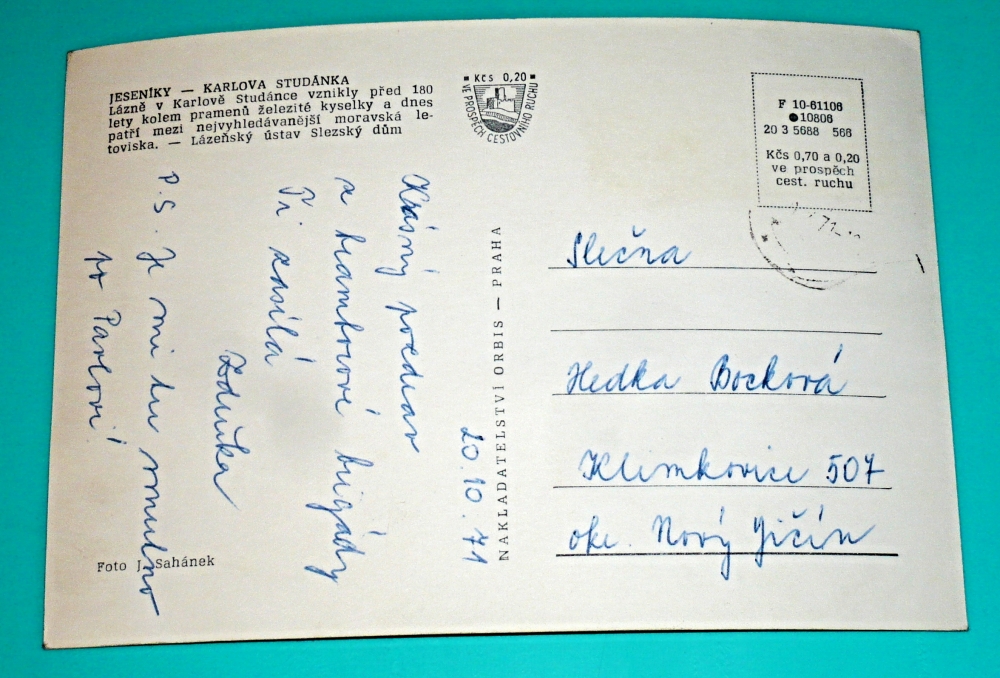 JESENÍKY — KARLOVA STUDÁNKA
Lázně v Karlově Studánce vznikly před 180
lety kolem pramenů železité kyselky a dnes
patří mezi nejvyhledávanější moravská le-
toviska. — Lázeňský ústav Slezský dům
Kčs 0,20
VE PROSPĚCH CESTOVNÍHO RUCHU
F 10-61106
10806
20 3 5688 566
Kčs 0,70 a 0,20
ve prospěch
cest. ruchu
20. 10. 71
Krásný pozdrav
z bramborové brigády
Ti zasílá
Zdeňka
P.S. Je mi tu smutno
po Pavlovi!
Foto J. Sahánek
NAKLADATELSTVÍ ORBIS — PRAHA
Slečna
Hedka Bocková
Klimkovice 507
okr. Nový Jičín